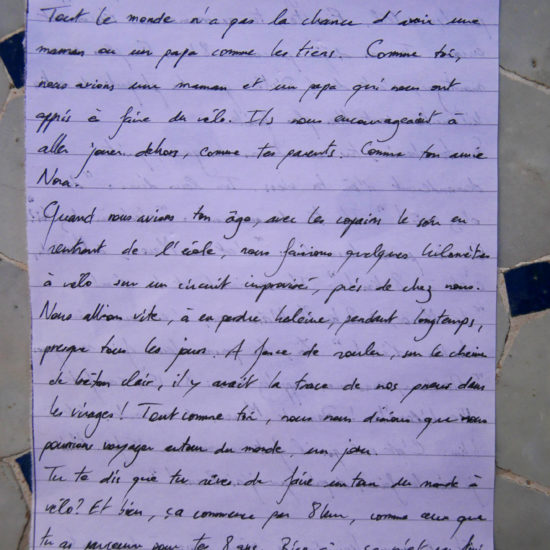 Tout le monde n'a pas la chance d'avoir une
maman ou un papa comme les tiens. Comme toi,
nous avions une maman et un papa qui nous ont
appris à faire du vélo. Ils nous encourageaient à
aller jouer dehors, comme tes parents. Comme ton amie
Nora.
Quand nous avions ton âge, avec les copains le soir en
rentrant de l'école, nous faisions quelques kilomètres
à vélo sur un circuit improvisé, près de chez nous.
Nous allions vite, à en perdre haleine, pendant longtemps,
presque tous les jours. A force de rouler, sur le chemin
de béton clair, il y avait la trace de nos pneus dans
les virages! Tout comme toi, nous nous disions que nous
pourrions voyager autour du monde, un jour.
Tu te dis que tu rêves de faire un tour du monde à
vélo? Et bien, ça commence par 8 km, comme ceux que
tu as parcouru pour tes 8 ans.